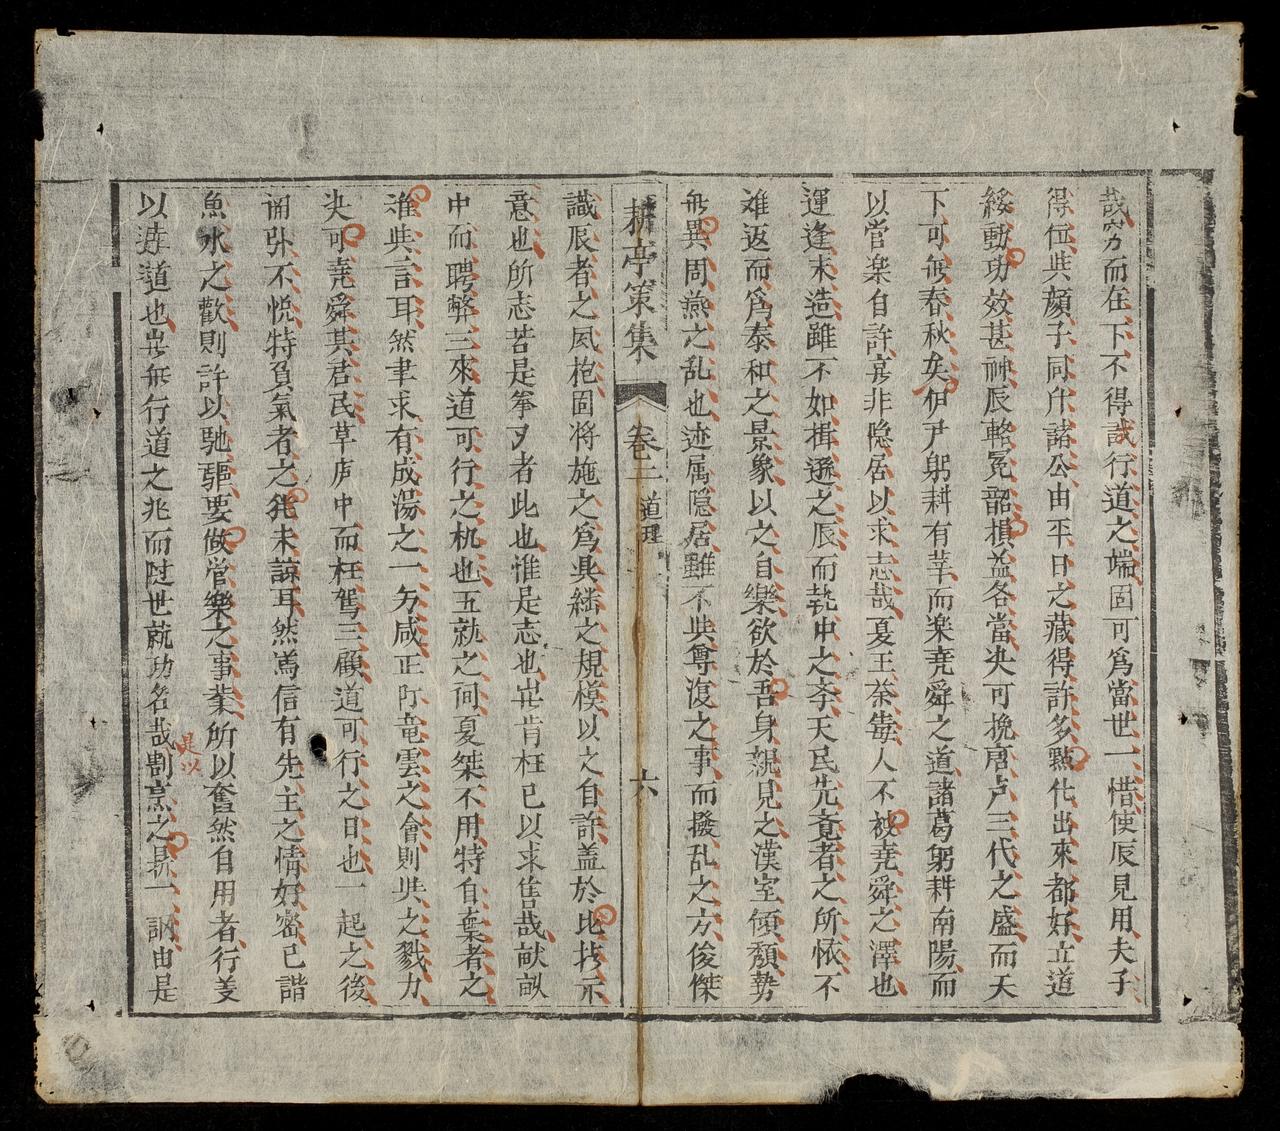 哉穷而在下不得哉行道之端固可爲當世一惜使辰見用夫子
得位與顏子同升諸公由平日之藏得許多點化出來都好立道
綏動功效甚神辰輅冕韶損益各當决可挽唐卢三代之盛而天
下可無春秋矣伊尹躬耕有莘而楽堯舜之道諸葛躬耕南陽而
以管楽自許豈非隐居以求志哉夏王荼毒人不被堯舜之澤也
運逢末造雖不如揖遜之辰而執中之李天民先竟者之所恢不
难返而爲泰和之景象以之自樂欲於吾身親見之漢室傾頹勢
無異周燕之乱也迹属隠居雖不與尊復之事而撥乱之方俊傑
耕亭策集 卷二 道理 六
識辰者之夙抱固将施之爲具経之規模以之自許盖於此指示
意也所志若是筝又者此也惟是志也岂肯枉己以求售哉畎畝
中而聘幣三來道可行之机也五就之间夏桀不用特自棄者之
难與言耳然聿求有成湯之一匁咸正阿竜雲之會則與之戮力
决可堯舜其君民草庐中而枉驾三顧道可行之日也一起之後
関引不悦特負氣者之往未諒耳然焉信有先主之情好密已諧
魚水之歡則許以馳驅要做管樂之事業所以奮然自用者行义
以達道也岂無行道之兆而赴世就功名哉割烹之是以㬎一詞由是